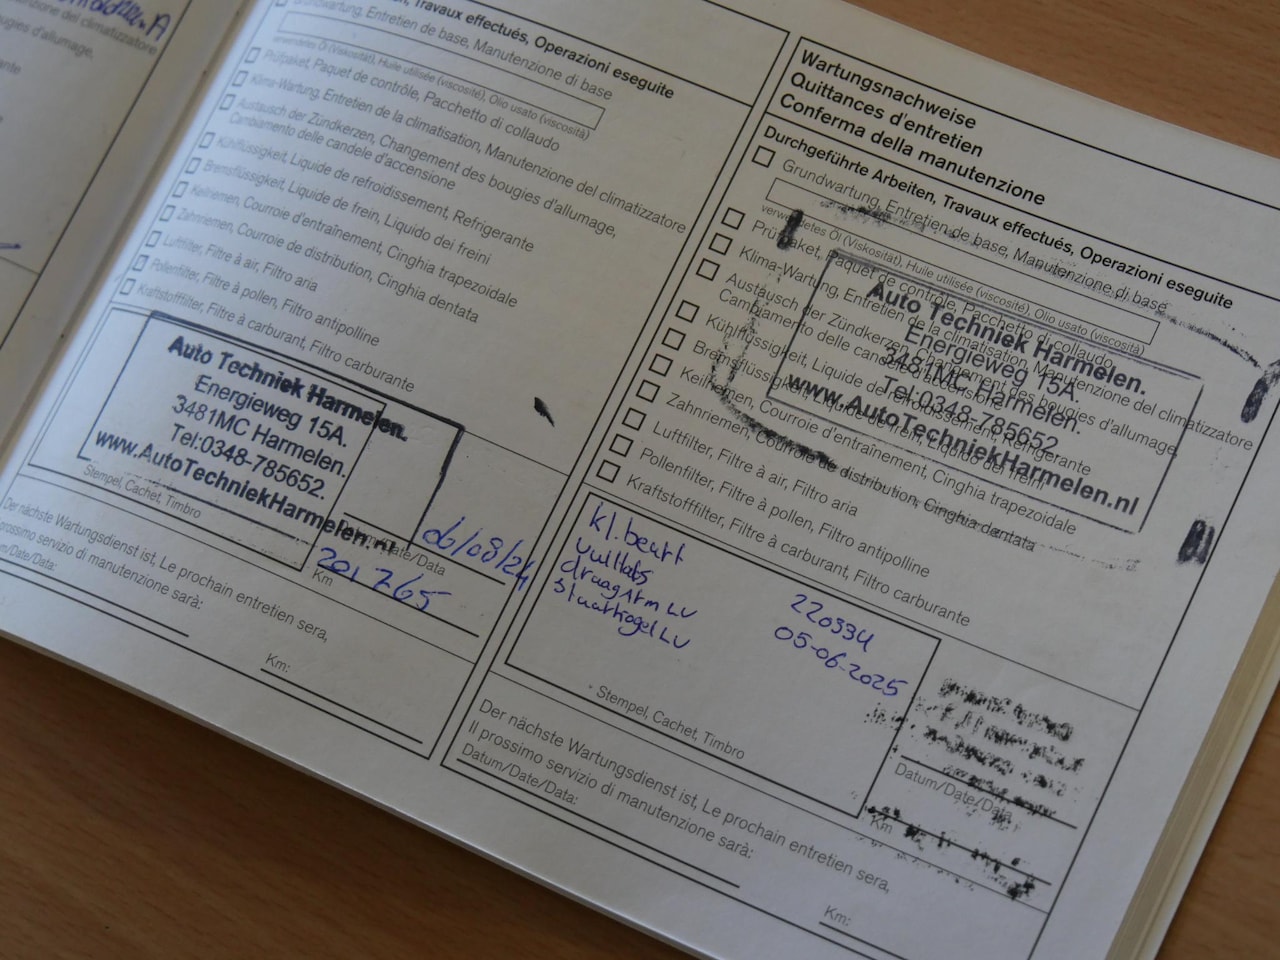 Travaux effectués, Operazioni eseguite
Grundwartung, Entretien de base, Manutenzione di base
verwendetes Öl (Viskosität), Huile utilisée (viscosité), Olio usato (viscosità)
Prüfpaket, Paquet de contrôle, Pacchetto di collaudo
Klima-Wartung, Entretien de la climatisation, Manutenzione del climatizzatore
Austausch der Zündkerzen, Changement des bougies d'allumage,
Cambiamento delle candele d'accensione
Kühlflüssigkeit, Liquide de refroidissement, Refrigerante
Bremsflüssigkeit, Liquide de frein, Liquido dei freini
Keilriemen, Courroie d'entraînement, Cinghia trapezoidale
Zahnriemen, Courroie de distribution, Cinghia dentata
Luftfilter, Filtre à air, Filtro aria
Pollenfilter, Filtre à pollen, Filtro antipolline
Kraftstofffilter, Filtre à carburant, Filtro carburante
Auto Techniek Harmelen.
Energieweg 15A.
3481MC Harmelen.
Tel:0348-785652.
www.AutoTechniekHarmelen.nl
Stempel, Cachet, Timbro
06/08/24
/Date/Data
201765
Km
Der nächste Wartungsdienst ist, Le prochain entretien sera,
prossimo servizio di manutenzione sarà:
/Date/Data:
Km:
Wartungsnachweise
Quittances d'entretien
Conferma della manutenzione
Durchgeführte Arbeiten, Travaux effectués, Operazioni eseguite
Grundwartung, Entretien de base, Manutenzione di base
verwendetes Öl (Viskosität), Huile utilisée (viscosité), Olio usato (viscosità)
Prüfpaket, Paquet de contrôle, Pacchetto di collaudo
Klima-Wartung, Entretien de la climatisation, Manutenzione del climatizzatore
Austausch der Zündkerzen, Changement des bougies d'allumage,
Cambiamento delle candele d'accensione
Kühlflüssigkeit, Liquide de refroidissement, Refrigerante
Bremsflüssigkeit, Liquide de frein, Liquido dei freini
Keilriemen, Courroie d'entraînement, Cinghia trapezoidale
Zahnriemen, Courroie de distribution, Cinghia dentata
Luftfilter, Filtre à air, Filtro aria
Pollenfilter, Filtre à pollen, Filtro antipolline
Kraftstofffilter, Filtre à carburant, Filtro carburante
Auto Techniek Harmelen.
Energieweg 15A.
3481MC Harmelen.
Tel:0348-785652.
www.AutoTechniekHarmelen.nl
kl.beurt
draagarm LV
LV
220934
05-06-2025
Stempel, Cachet, Timbro
Datum/Date/Data
Km
Der nächste Wartungsdienst ist, Le prochain entretien sera,
Il prossimo servizio di manutenzione sarà:
Datum/Date/Data:
Km: